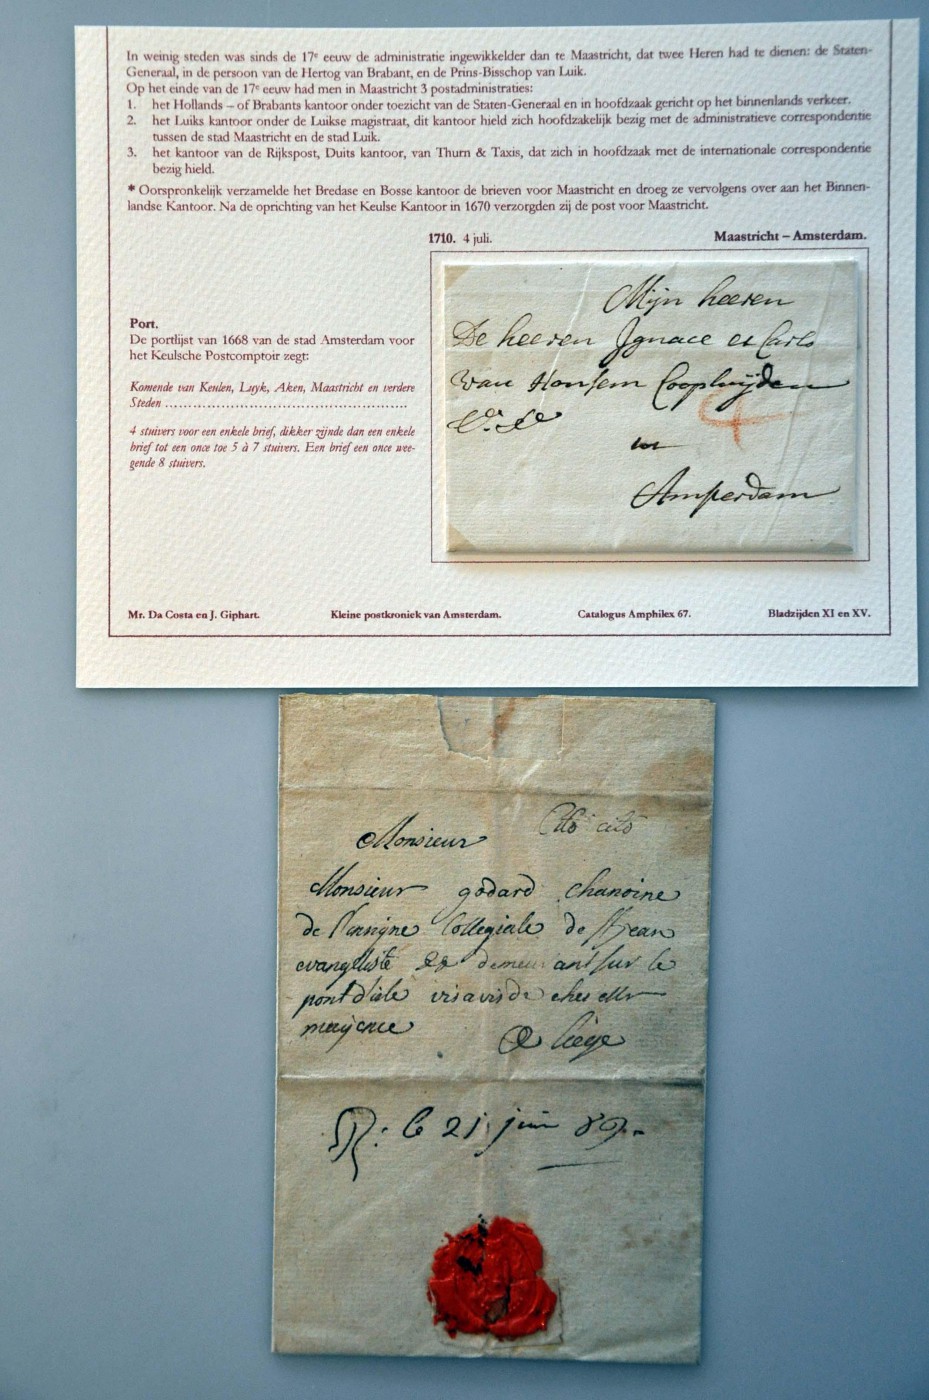 In weinig steden was sinds de 17e eeuw de administratie ingewikkelder dan te Maastricht, dat twee Heren had te dienen: de Staten-
Generaal, in de persoon van de Hertog van Brabant, en de Prins-Bisschop van Luik.
Op het einde van de 17e eeuw had men in Maastricht 3 postadministraties:
1. het Hollands – of Brabants kantoor onder toezicht van de Staten-Generaal en in hoofdzaak gericht op het binnenlands verkeer.
2. het Luiks kantoor onder de Luikse magistraat, dit kantoor hield zich hoofdzakelijk bezig met de administratieve correspondentie
tussen de stad Maastricht en de stad Luik.
3. het kantoor van de Rijkspost, Duits kantoor, van Thurn & Taxis, dat zich in hoofdzaak met de internationale correspondentie
bezig hield.
* Oorspronkelijk verzamelde het Bredase en Bosse kantoor de brieven voor Maastricht en droeg ze vervolgens over aan het Binnen-
landse Kantoor. Na de oprichting van het Keulse Kantoor in 1670 verzorgden zij de post voor Maastricht.
1710. 4 juli. Maastricht – Amsterdam.
Port.
De portlijst van 1668 van de stad Amsterdam voor
het Keulsche Postcomptoir zegt:
Komende van Keulen, Luyk, Aken, Maastricht en verdere
Steden ................................................
4 stuivers voor een enkele brief, dikker zijnde dan een enkele
brief tot een once toe 5 à 7 stuivers. Een brief een once wee-
gende 8 stuivers.
Mijn heeren
De heeren Ignace et Carlo
van Honsem Coopluijden
4
Amsterdam
Mr. Da Costa en J. Giphart. Kleine postkroniek van Amsterdam. Catalogus Amphilex 67. Bladzijden XI en XV.
Cito cito
Monsieur
Monsieur godard chanoine
de l'insigne Collegiale de St jean
evangeliste demeurant sur le
pont d'isle vis a vis de ches Mr
mayence
A liège
R: le 21 juin 89.